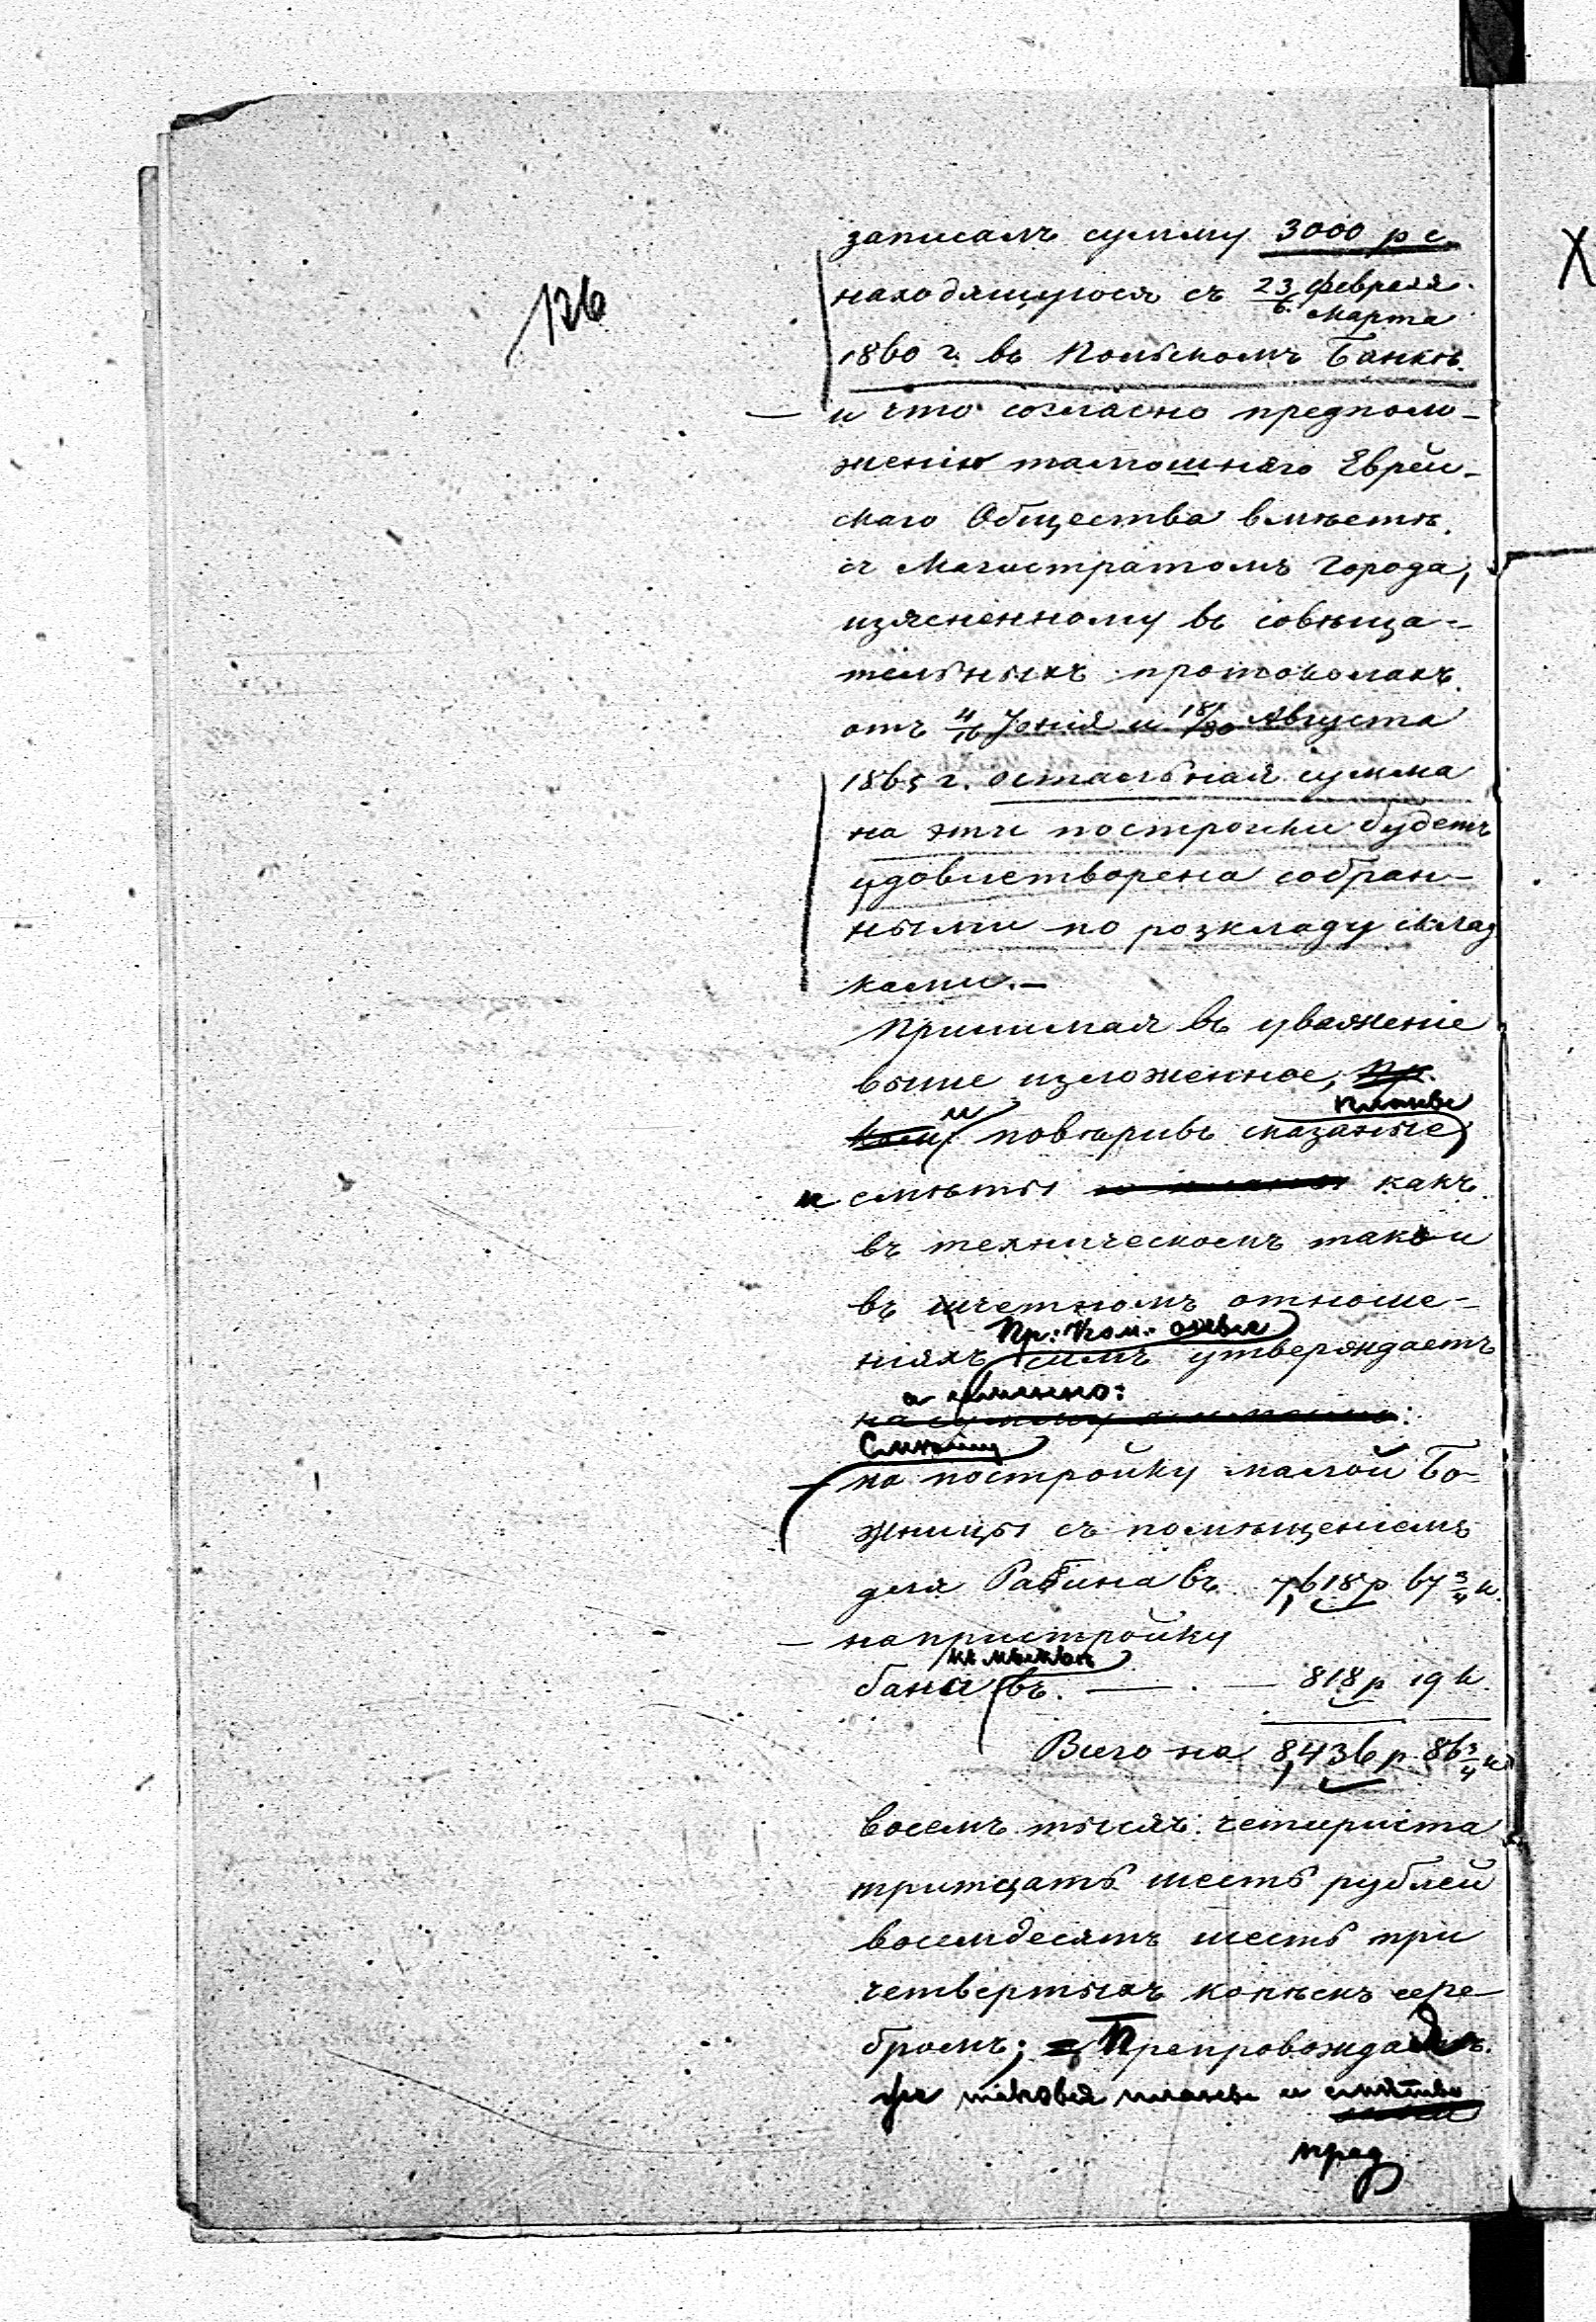 126
записалъ сумму 3000 р с.
находящуюся съ 23/6 Февраля/Марта
1860 г. въ Польскомъ Банкѣ.
— и что согласно предполо-
женію тамошняго Еврей-
скаго Общества вмѣстѣ
съ Магистратомъ города,
изясненному въ совѣща-
тельныхъ протоколахъ
отъ 4/16 Іюня и 18/30 Августа
1865 г. остальная сумма
на эти постройки будетъ
удовлетворена собран-
ными по розкладу склад
ками.—
Принимая въ уваженіе
выше изложенное, Пр.
Ком. и повѣривъ сказаные планы
и смѣты и планы какъ
въ техническомъ такъ и
въ счетномъ отноше-
ніяхъ Пр: Ком: оные симъ утверждаетъ
а именно:
на сумму а именно:
Смѣту
— на постройку малой Бо-
жницы съ помѣщеніемъ
для Рабина въ 7,618 р 67 3/4 к.
— на пристройку
бани къ миквѣ въ. — . — 818 р 19 к.
Всего на 8,436 р. 86 3/4 к
восемъ тысяч: четыриста
тритцать шесть рублей
восемдесятъ шесть три
четвертыхъ копѣекъ сере-
бромъ; = Препровождая
таковыя планы и смѣты
пред
X